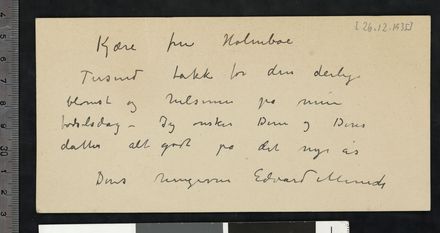 [26.12.1935]
Kære fru Holmboe
Tusind takk for den deilige
blomst og hilsenen på min
fødselsdag – Jeg ønsker Dem og Deres
datter alt godt på det nye år
Deres hengivne Edvard Munch